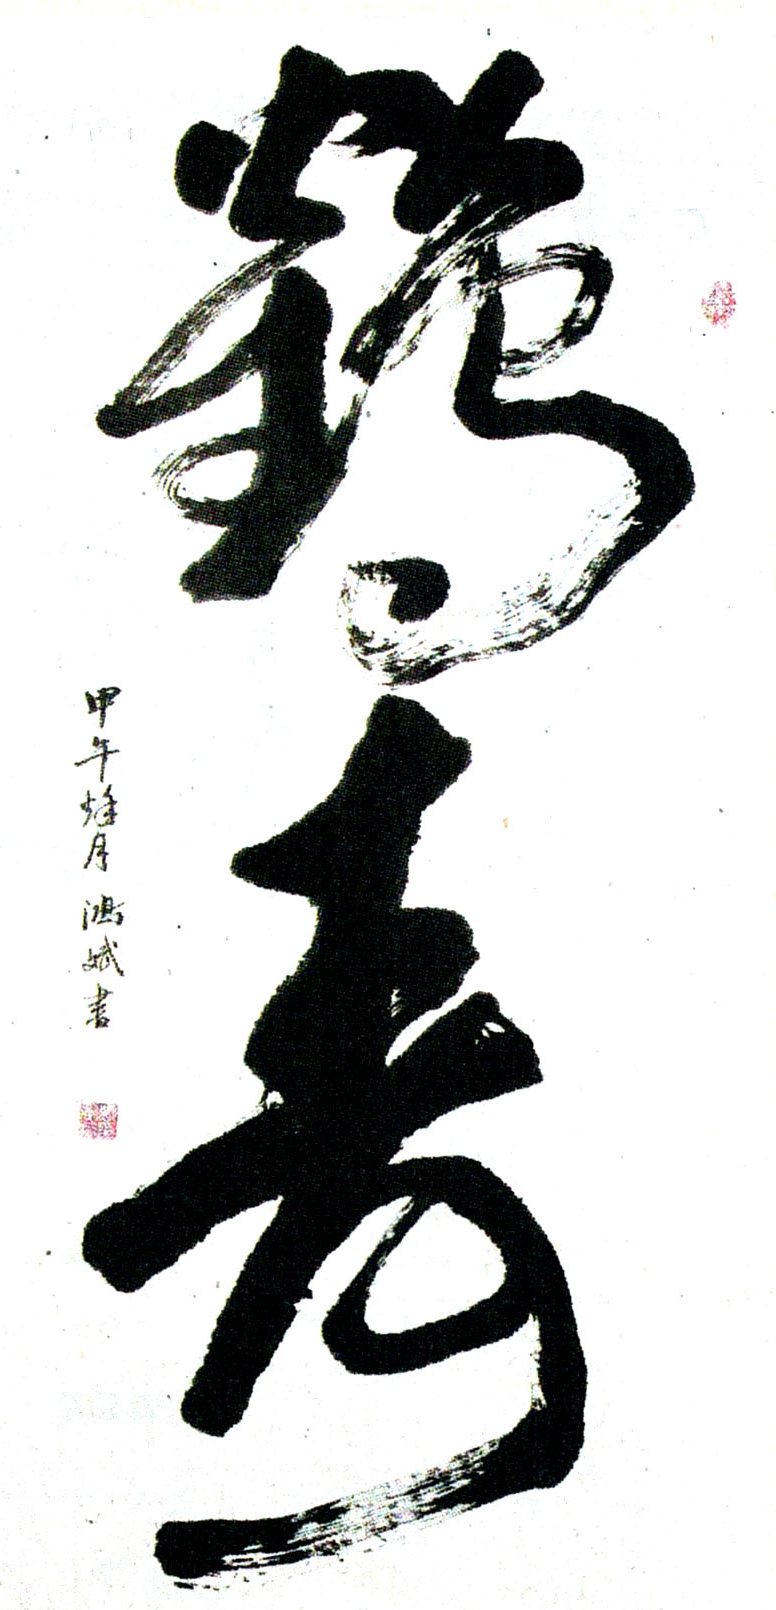 鶴壽
甲午烽月 鴻斌書